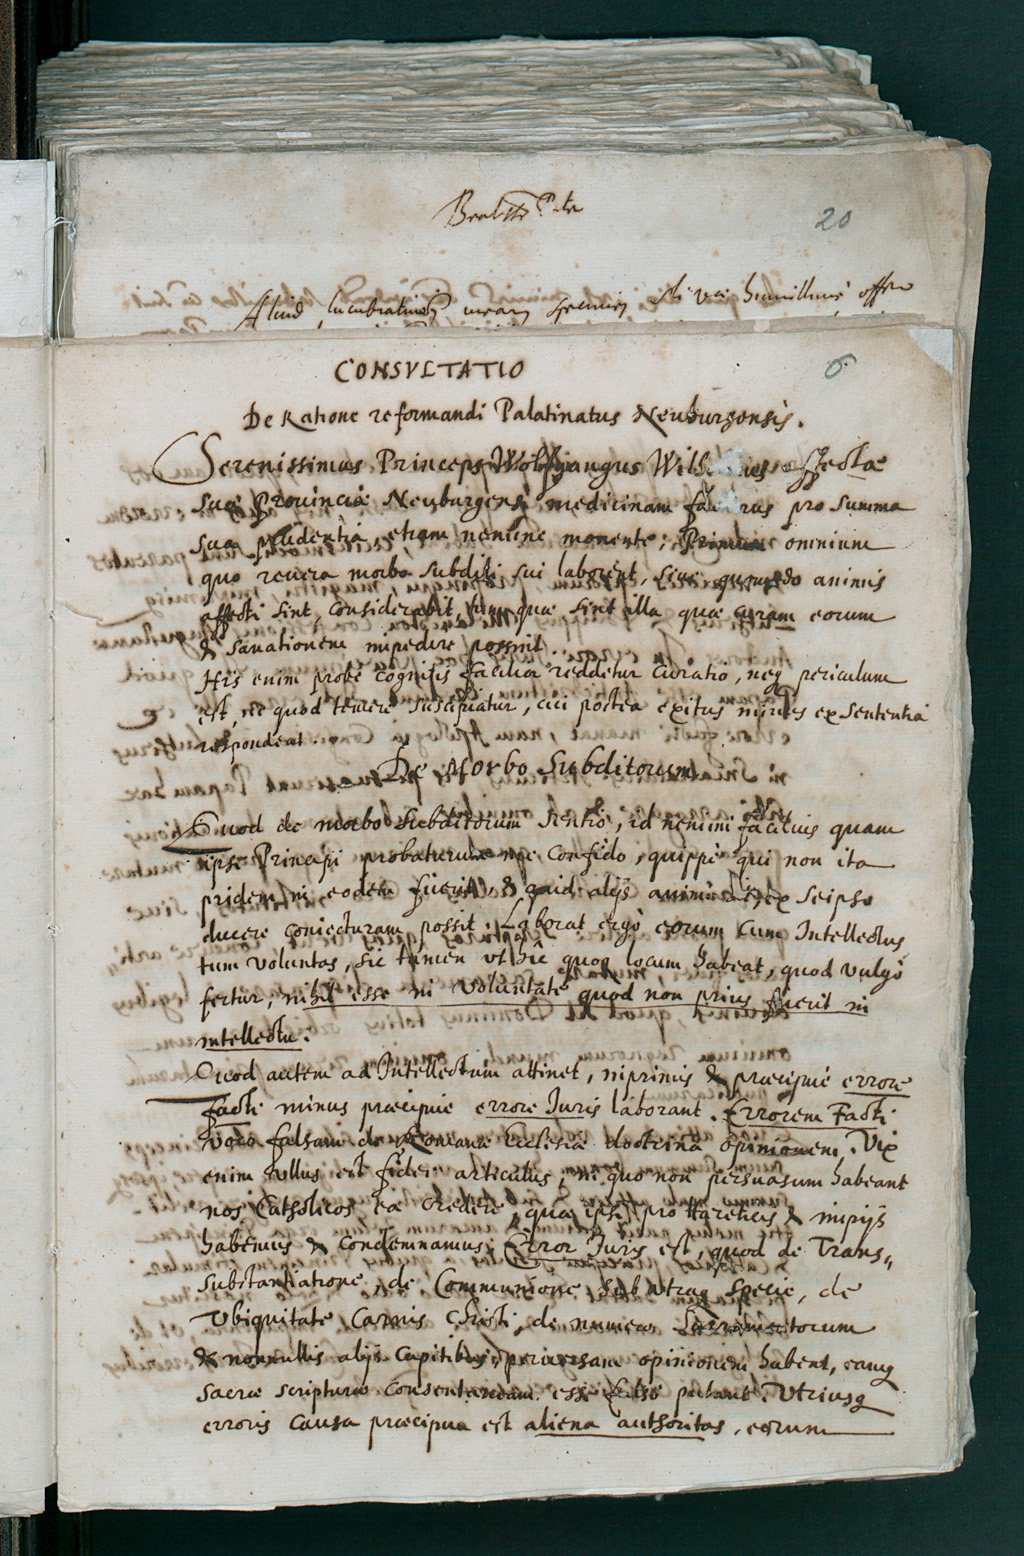 20
Aliud lucubrationis mearum specimen humillime offero
6
CONSVLTATIO
De Ratione reformandi Palatinatus Neuburgensis.
Serenissimus Princeps Wolfgangus Wilhelmus affectæ
suæ Prouinciæ Neuburgensi medicinam facturus pro summa
sua prudentia, etiam nemine monente; Primum omnium
quo reuera morbo subditi sui laborent, siue quomodo animis
affecti sint, considerabit, tum quæ sint illa quæ curam eorum
& sanationem impedire possint.
His enim probe cognitis facilior reddetur curatio, neq periculum
est, ne quod temere suscipiatur, cui postea exitus minus ex sententia
respondeat.
De Morbo Subditorum
Quod de morbo subditorum sentio, id nemini facilius quam
ipsi Principi probaturum me confido, quippe qui non ita
pridem in eodem fuerit, & quid alijs animi sit, ex seipso
ducere coniecturam possit. Laborat ergo eorum cum Intellectus
tum voluntas, sic tamen vt hic quoq locum habeat, quod vulgò
fertur, nihil esse in voluntate quod non prius fuerit in
intellectu.
Quod autem ad Intellectum attinet, inprimis & præcipue errore
facti minus præcipue errore Iuris laborant. Errorem Facti
voco falsam de Romanæ Ecclesiæ doctrina opinionem. Vix
enim vllus est fidei articulus, in quo non persuasum habeant
nos Catholicos ea credere, quæ ipsi pro Hæreticis & impijs
habemus & condemnamus. Error Iuris est, quod de Trans„
substantiatione, de Communione sub vtraq specie, de
Vbiquitate Carnis Christi, de numero Sacramentorum
& nonnullis alijs Capitibus, peruersam opinionem habent, eamq
sacræ scripturæ consentaneam esse falso putant. Vtriusq
erroris causa præcipua est aliena authoritas, eorum